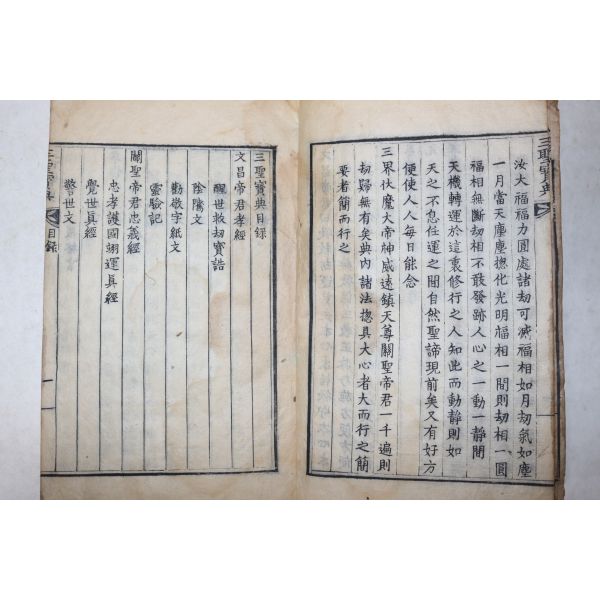 三聖寶典
汝大福福力圓處諸劫可滅福相如月劫氣如塵
一月當天塵塵摠化光明福相一間則劫相一圓
福相無斷劫相不敢發跡人心之一動一靜間
天機轉運於這裏修行之人知此而動靜則如
天之不息任運之間自然聖諦現前矣又有好方
便使人人每日能念
三界伏魔大帝神威遠鎮天尊關聖帝君一千遍則
劫歸無有矣典內諸法摠具大心者大而行之簡
要者簡而行之
三聖寶典目録
文昌帝君孝經
醒世救劫寶誥
陰騭文
勸敬字紙文
靈驗記
關聖帝君忠義經
忠孝護國翊運眞經
覺世眞經
警世文
三聖寶典 目録 一